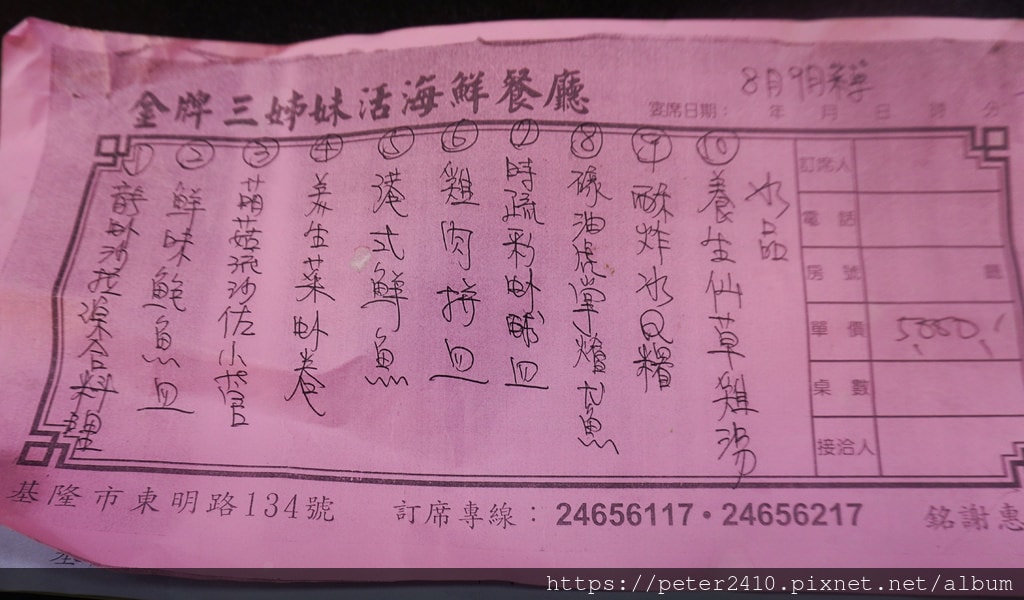 金牌三姊妹活海鮮餐廳
8月9月菜單
宴席日期： 年 月 日 時 分
①
龍蝦沙拉深合料理
②鮮味鮑魚皿
③菇菇流沙佐小管
④美生菜卧卷
⑤港式鮮魚
⑥雞肉拼皿
⑦時疏彩卧球皿
⑧
⑨酥炸水果糰
⑩養生仙草雞湯
水品
訂席人
電話
房號
單價 5880
桌數
接洽人
基隆市東明路134號
訂席專線：24656117•24656217
銘謝惠
https://peter2410.pixnet.net/album